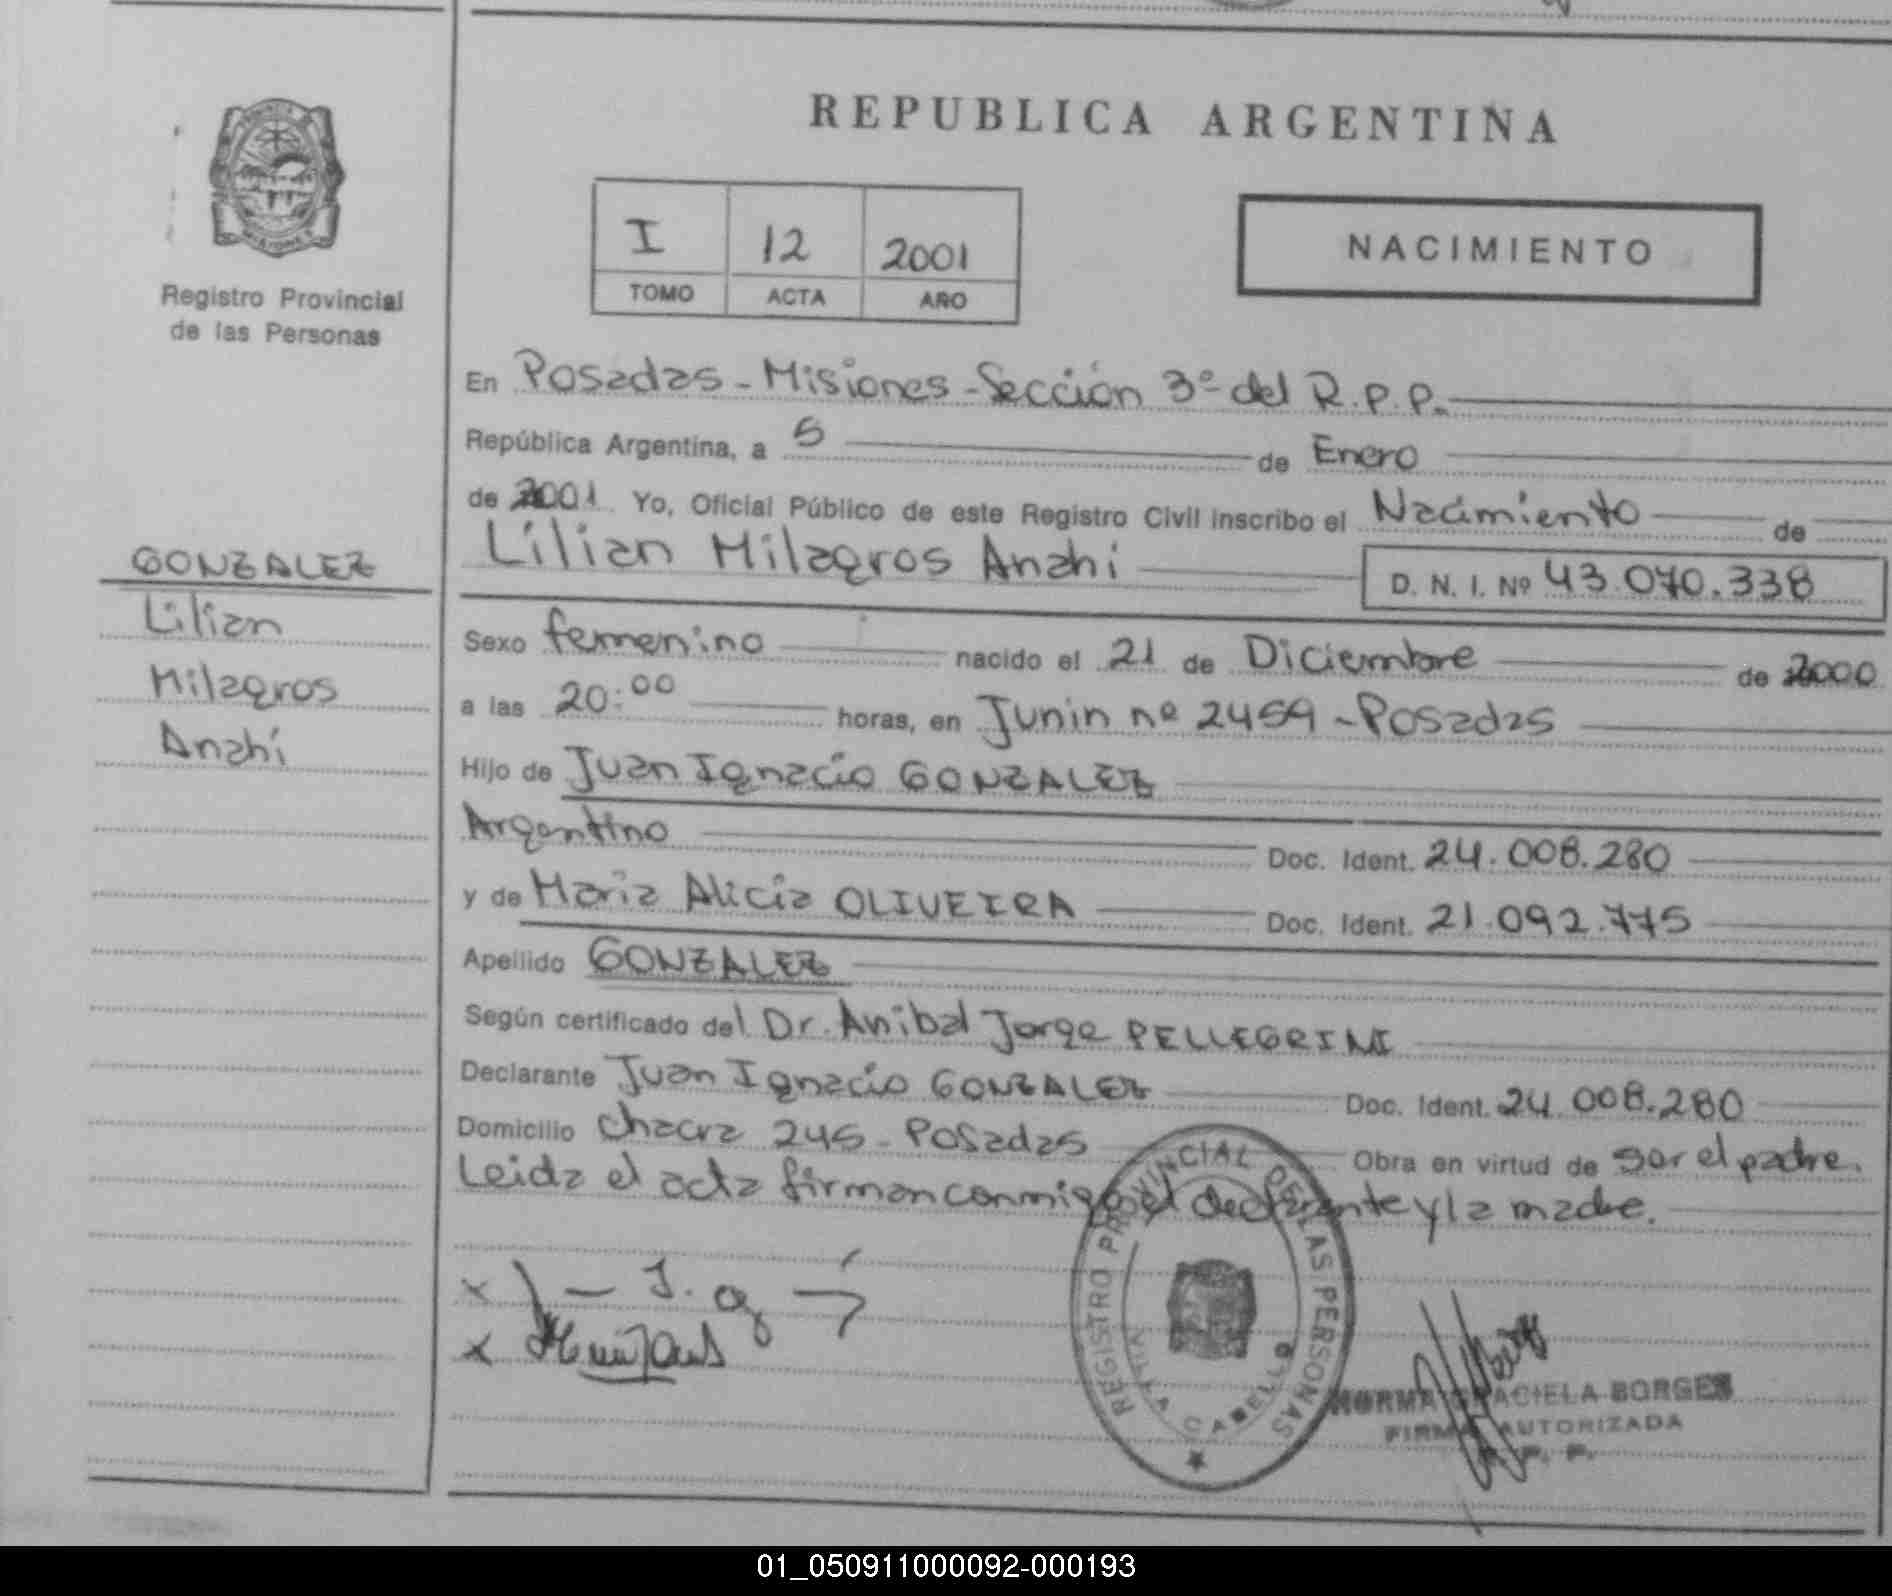 REPUBLICA ARGENTINA
I 12 2001
TOMO ACTA AÑO
NACIMIENTO
Registro Provincial
de las Personas
GONZALEZ
Lilian
Milagros
Anahí
En Posadas - Misiones - Sección 3º del R.P.P.
República Argentina, a 5 de Enero
de 2001. Yo, Oficial Público de este Registro Civil inscribo el Nacimiento de
Lilian Milagros Anahi D. N. I. Nº 43.070.338
Sexo femenino nacido el 21 de Diciembre de 2000
a las 20:00 horas, en Junin nº 2459 - Posadas
Hijo de Juan Ignacio GONZALEZ
Argentino Doc. Ident. 24.008.280
y de Maria Alicia OLIVEIRA Doc. Ident. 21.092.775
Apellido GONZALEZ
Según certificado del Dr. Anibal Jorge PELLEGRINI
Declarante Juan Ignacio GONZALEZ Doc. Ident. 24.008.280
Domicilio Chacra 245 - Posadas Obra en virtud de ser el padre.
Leida el acta firman conmigo el declarante y la madre.
REGISTRO PROVINCIAL DE LAS PERSONAS
VILLA CABELLO
NORMA GRACIELA BORGES
FIRMA AUTORIZADA
R. P. P.
01_050911000092-000193